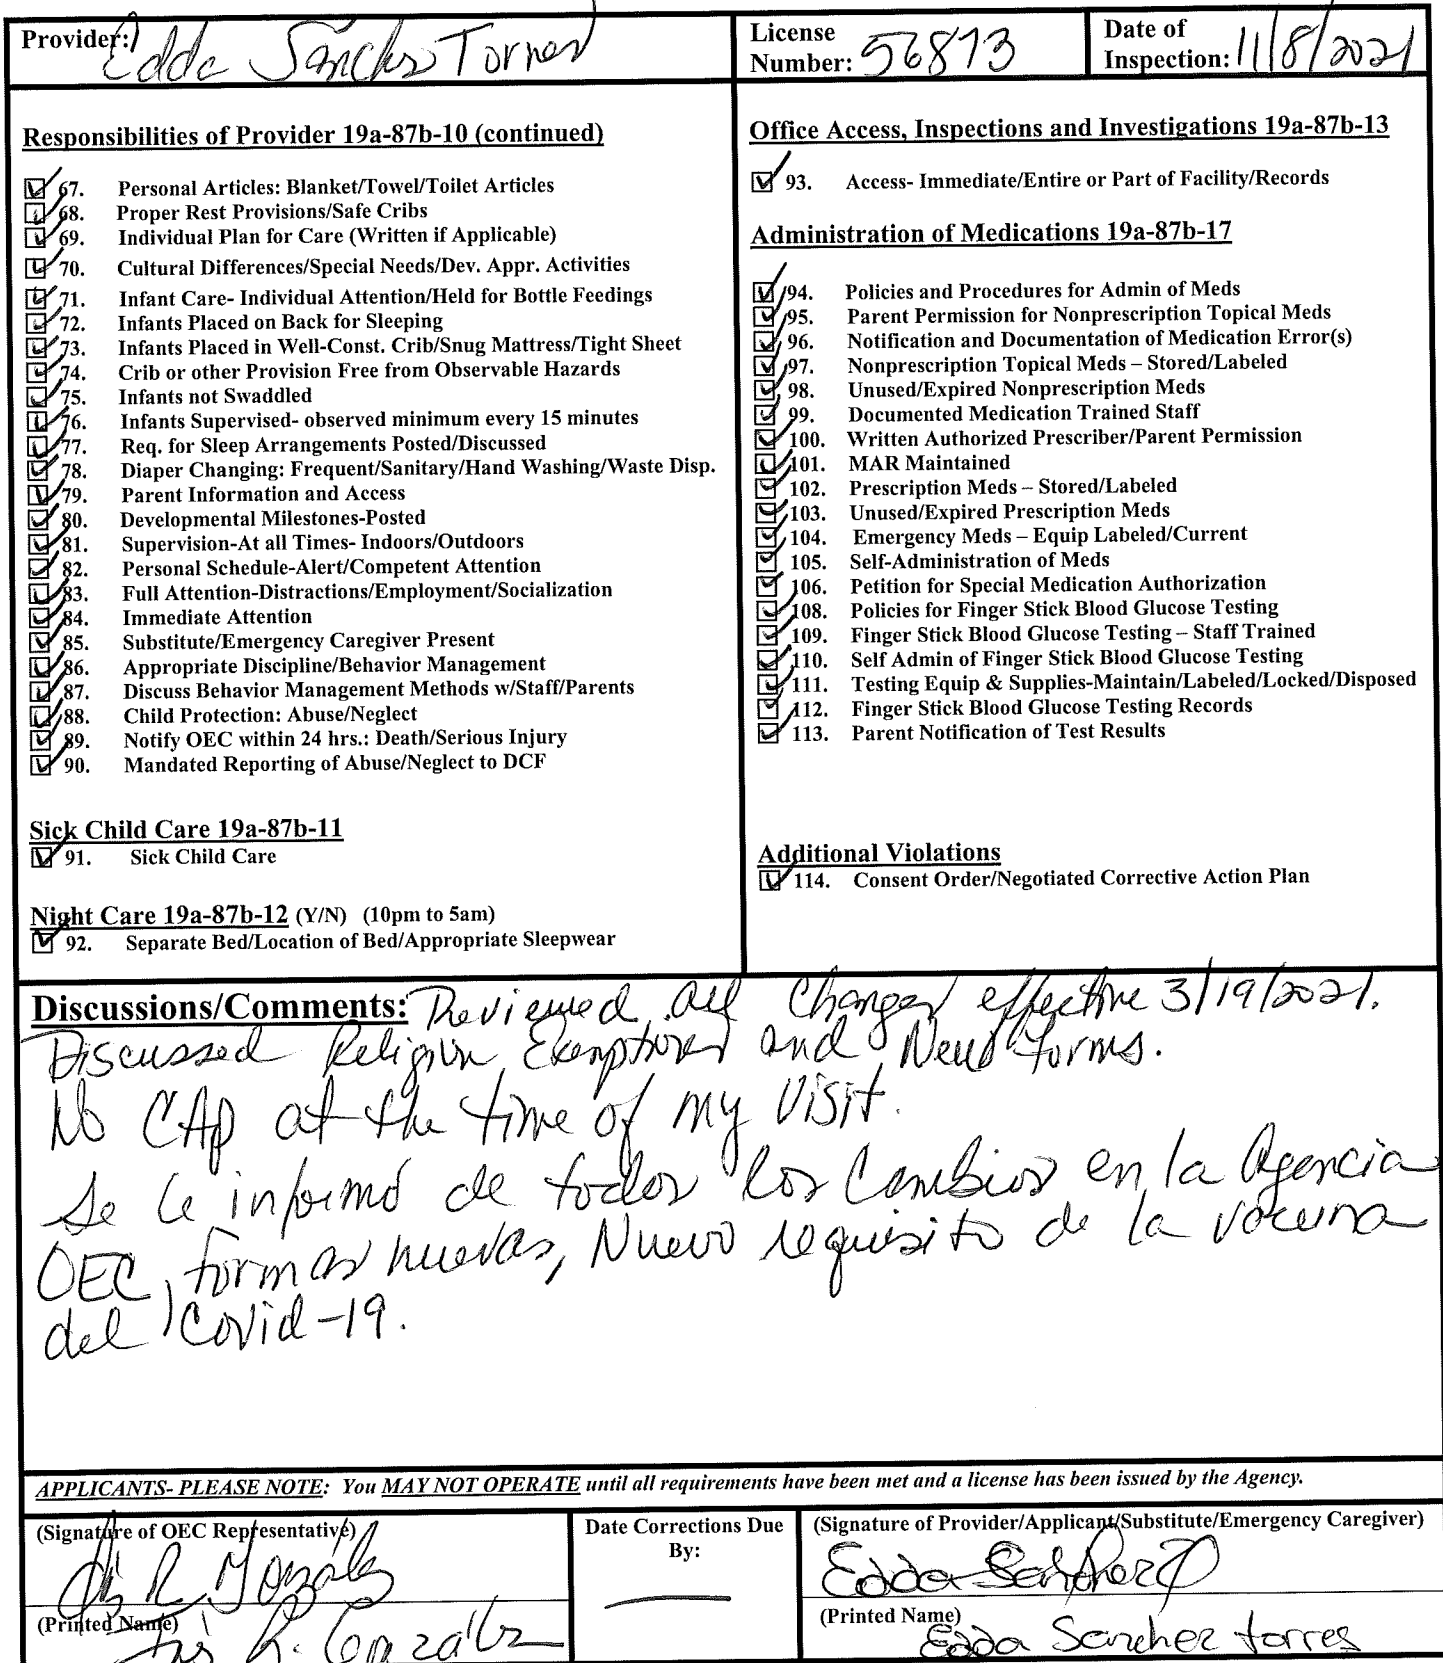 Provider: Edda Sanchez Torres
License Number: 56873
Date of Inspection: 11/8/2021
Responsibilities of Provider 19a-87b-10 (continued)
67. Personal Articles: Blanket/Towel/Toilet Articles
68. Proper Rest Provisions/Safe Cribs
69. Individual Plan for Care (Written if Applicable)
70. Cultural Differences/Special Needs/Dev. Appr. Activities
71. Infant Care- Individual Attention/Held for Bottle Feedings
72. Infants Placed on Back for Sleeping
73. Infants Placed in Well-Const. Crib/Snug Mattress/Tight Sheet
74. Crib or other Provision Free from Observable Hazards
75. Infants not Swaddled
76. Infants Supervised- observed minimum every 15 minutes
77. Req. for Sleep Arrangements Posted/Discussed
78. Diaper Changing: Frequent/Sanitary/Hand Washing/Waste Disp.
79. Parent Information and Access
80. Developmental Milestones-Posted
81. Supervision-At all Times- Indoors/Outdoors
82. Personal Schedule-Alert/Competent Attention
83. Full Attention-Distractions/Employment/Socialization
84. Immediate Attention
85. Substitute/Emergency Caregiver Present
86. Appropriate Discipline/Behavior Management
87. Discuss Behavior Management Methods w/Staff/Parents
88. Child Protection: Abuse/Neglect
89. Notify OEC within 24 hrs.: Death/Serious Injury
90. Mandated Reporting of Abuse/Neglect to DCF
Sick Child Care 19a-87b-11
91. Sick Child Care
Night Care 19a-87b-12 (Y/N) (10pm to 5am)
92. Separate Bed/Location of Bed/Appropriate Sleepwear
Office Access, Inspections and Investigations 19a-87b-13
93. Access- Immediate/Entire or Part of Facility/Records
Administration of Medications 19a-87b-17
94. Policies and Procedures for Admin of Meds
95. Parent Permission for Nonprescription Topical Meds
96. Notification and Documentation of Medication Error(s)
97. Nonprescription Topical Meds – Stored/Labeled
98. Unused/Expired Nonprescription Meds
99. Documented Medication Trained Staff
100. Written Authorized Prescriber/Parent Permission
101. MAR Maintained
102. Prescription Meds – Stored/Labeled
103. Unused/Expired Prescription Meds
104. Emergency Meds – Equip Labeled/Current
105. Self-Administration of Meds
106. Petition for Special Medication Authorization
108. Policies for Finger Stick Blood Glucose Testing
109. Finger Stick Blood Glucose Testing – Staff Trained
110. Self Admin of Finger Stick Blood Glucose Testing
111. Testing Equip & Supplies-Maintain/Labeled/Locked/Disposed
112. Finger Stick Blood Glucose Testing Records
113. Parent Notification of Test Results
Additional Violations
114. Consent Order/Negotiated Corrective Action Plan
Discussions/Comments: Reviewed all Changes effective 3/19/2021.
Discussed Religion Exemptions and New forms.
No CAP at the time of my visit.
Se le informó de todos los Cambios en la Agencia
OEC, formas nuevas, Nuevo requisito de la vacuna
del Covid-19.
APPLICANTS- PLEASE NOTE: You MAY NOT OPERATE until all requirements have been met and a license has been issued by the Agency.
(Signature of OEC Representative)
R. González
(Printed Name)
R. Gonzalez
Date Corrections Due
By:
—
(Signature of Provider/Applicant/Substitute/Emergency Caregiver)
Edda Sanchez
(Printed Name)
Edda Sanchez torres